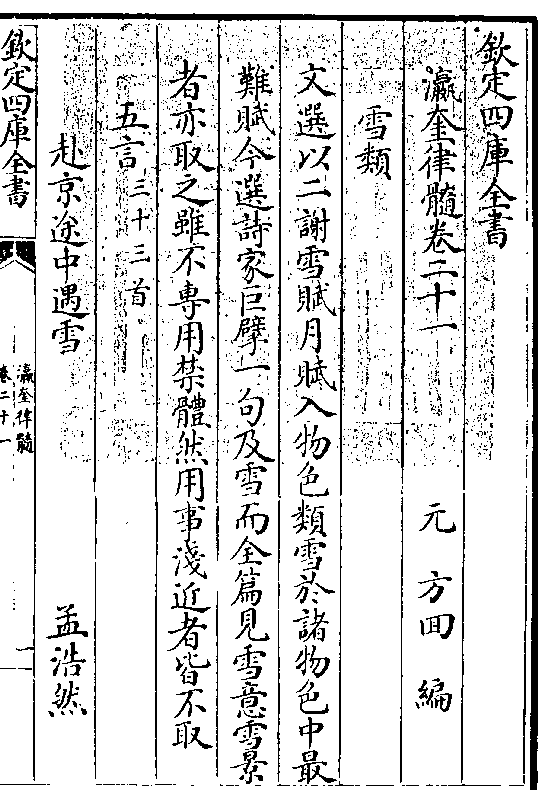 欽定四庫全書
瀛奎律髓卷二十一
元 方回 編
雪類
文選以二謝雪賦月賦入物色類雪於諸物色中最
難賦今選詩家巨擘一句及雪而全篇見雪意雪景
者亦取之雖不專用禁體然用事淺近者皆不取
五言三十三首
赴京途中遇雪 孟浩然
欽定四庫全書
瀛奎律髓
卷二十一
一